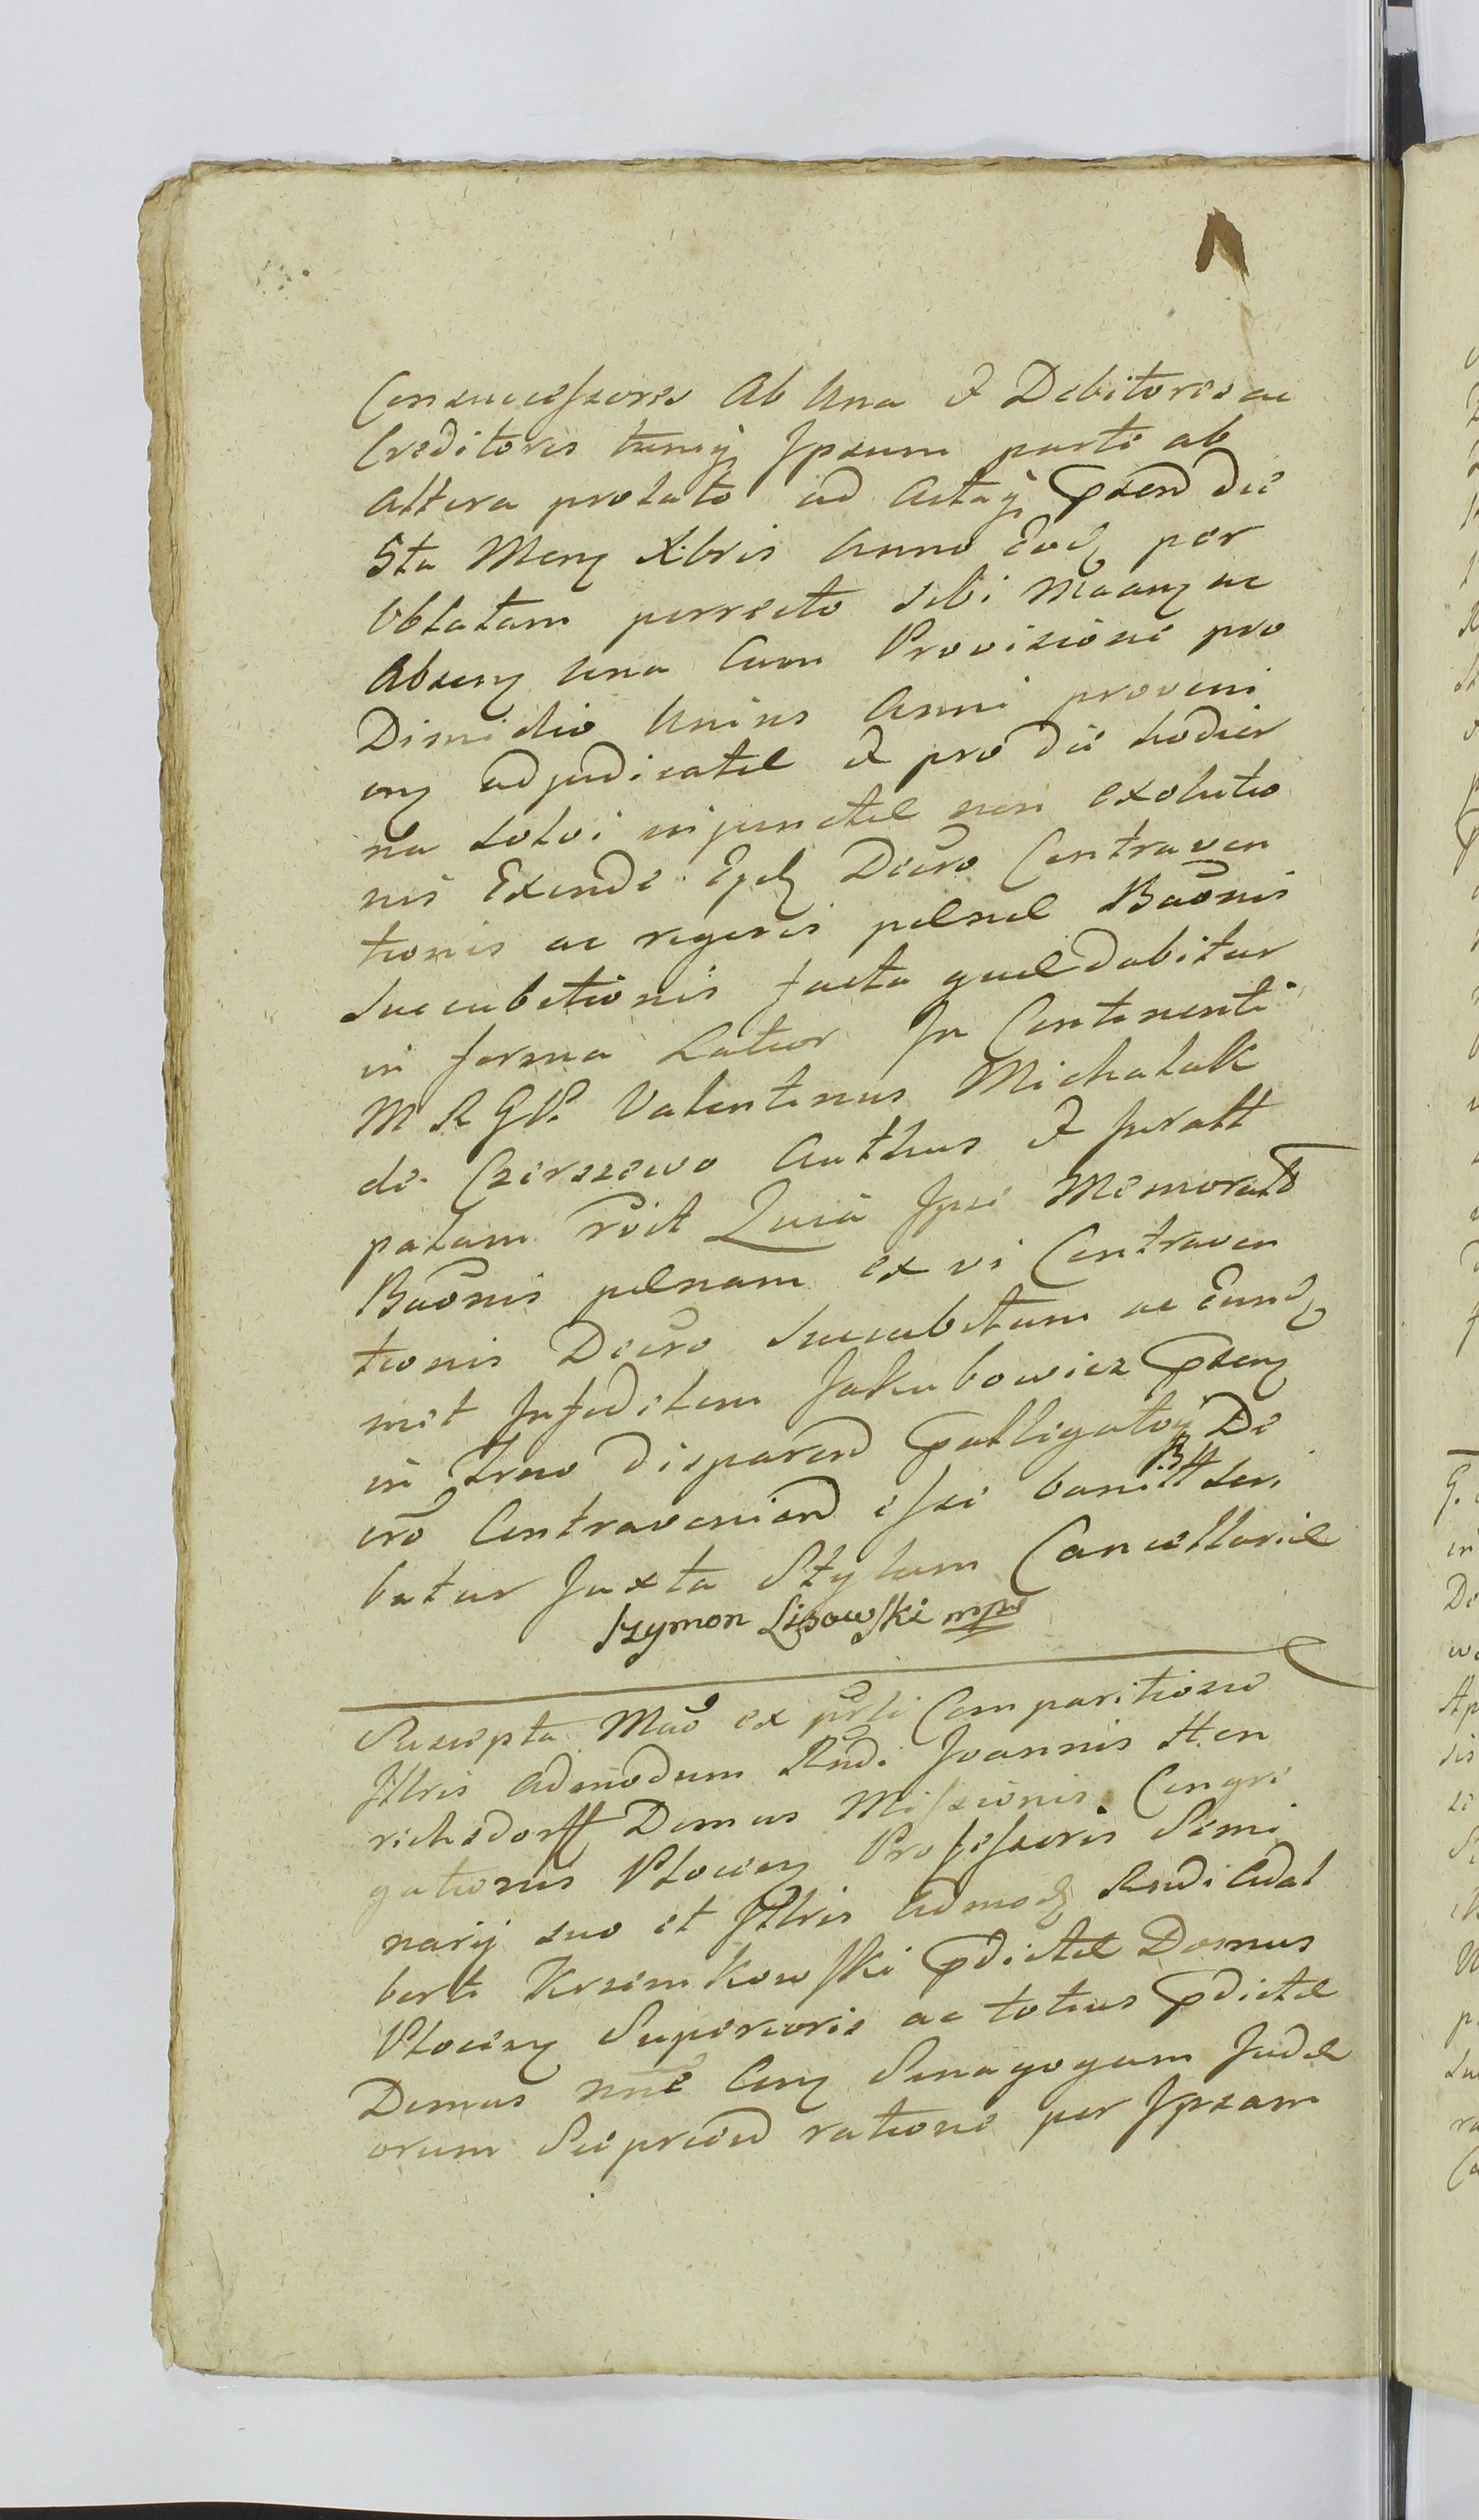 Consuccessores Ab Una & Debitores ac
Creditoris Ipsum parte ab
Altera prolato ad Acta die
5ta Xbris Anno Eod per
Oblatam porrecto sibi ac
Absen Una Cum Provisione pro
Dimidio Unius Anni proveni
en adjudicatae & pro die hodier
na solvi injunctae non exolutio
nis Exinde Decro Contraven
tionis ac regeris paenae Baonis
Succubitionis facta quae dabitur
in forma Latior In Continenti
M R G Valentinus Michalak
de Czerszewo Authus & Juratt
palam Quia Ipse Memorat
Baonis paenam ex vi Contraven
tionis Decro Succubitum ac Eund
met Infidelem Jakubowicz
in disparen De
cro Contravenien esse banitt scri
batur Juxta Stylum Cancellariae
Szymon Lisowski mpr
Suscepta Mao ex prli Comparitione
Illris Admodum Rndi Joannis Hen
richsdorff Domus Missionis Congre
gationis Plocen Professoris Semi
narij suo et Illris Admod Rndi Adal
berti Krzemkowski pdictae Domus
Plocen Superioris ac totius pdictae
Domus nne Con Sinagogam Judae
orum Sieprcen ratione per Ipsam